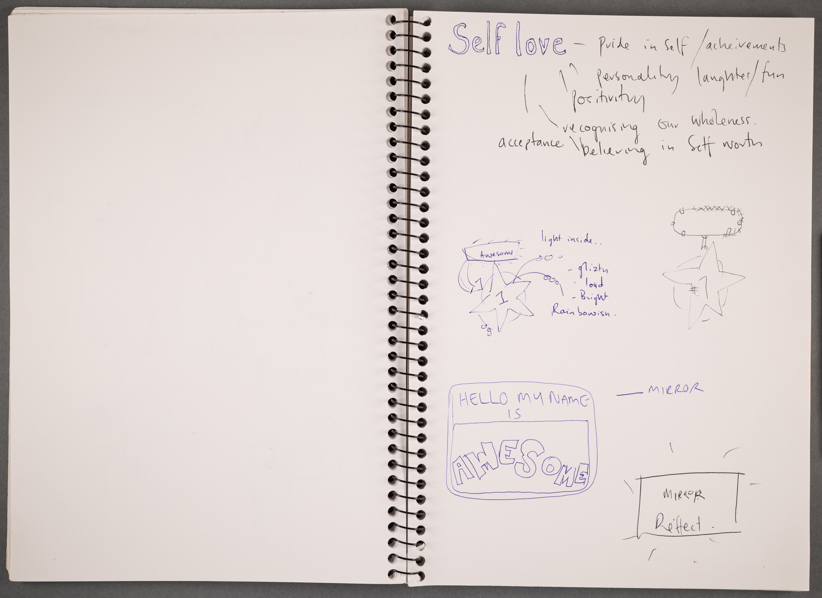 Self love - Pride in self /acheivements
personality laughter/fun
positivity
recognising our wholeness.
acceptance believing in Self worth
Awesome
light inside..
1
1
- glizty
- loud
- Bright
Rainbowish.
#1
HELLO MY NAME
IS
AWESOME
MIRROR
MIRROR
Reflect.